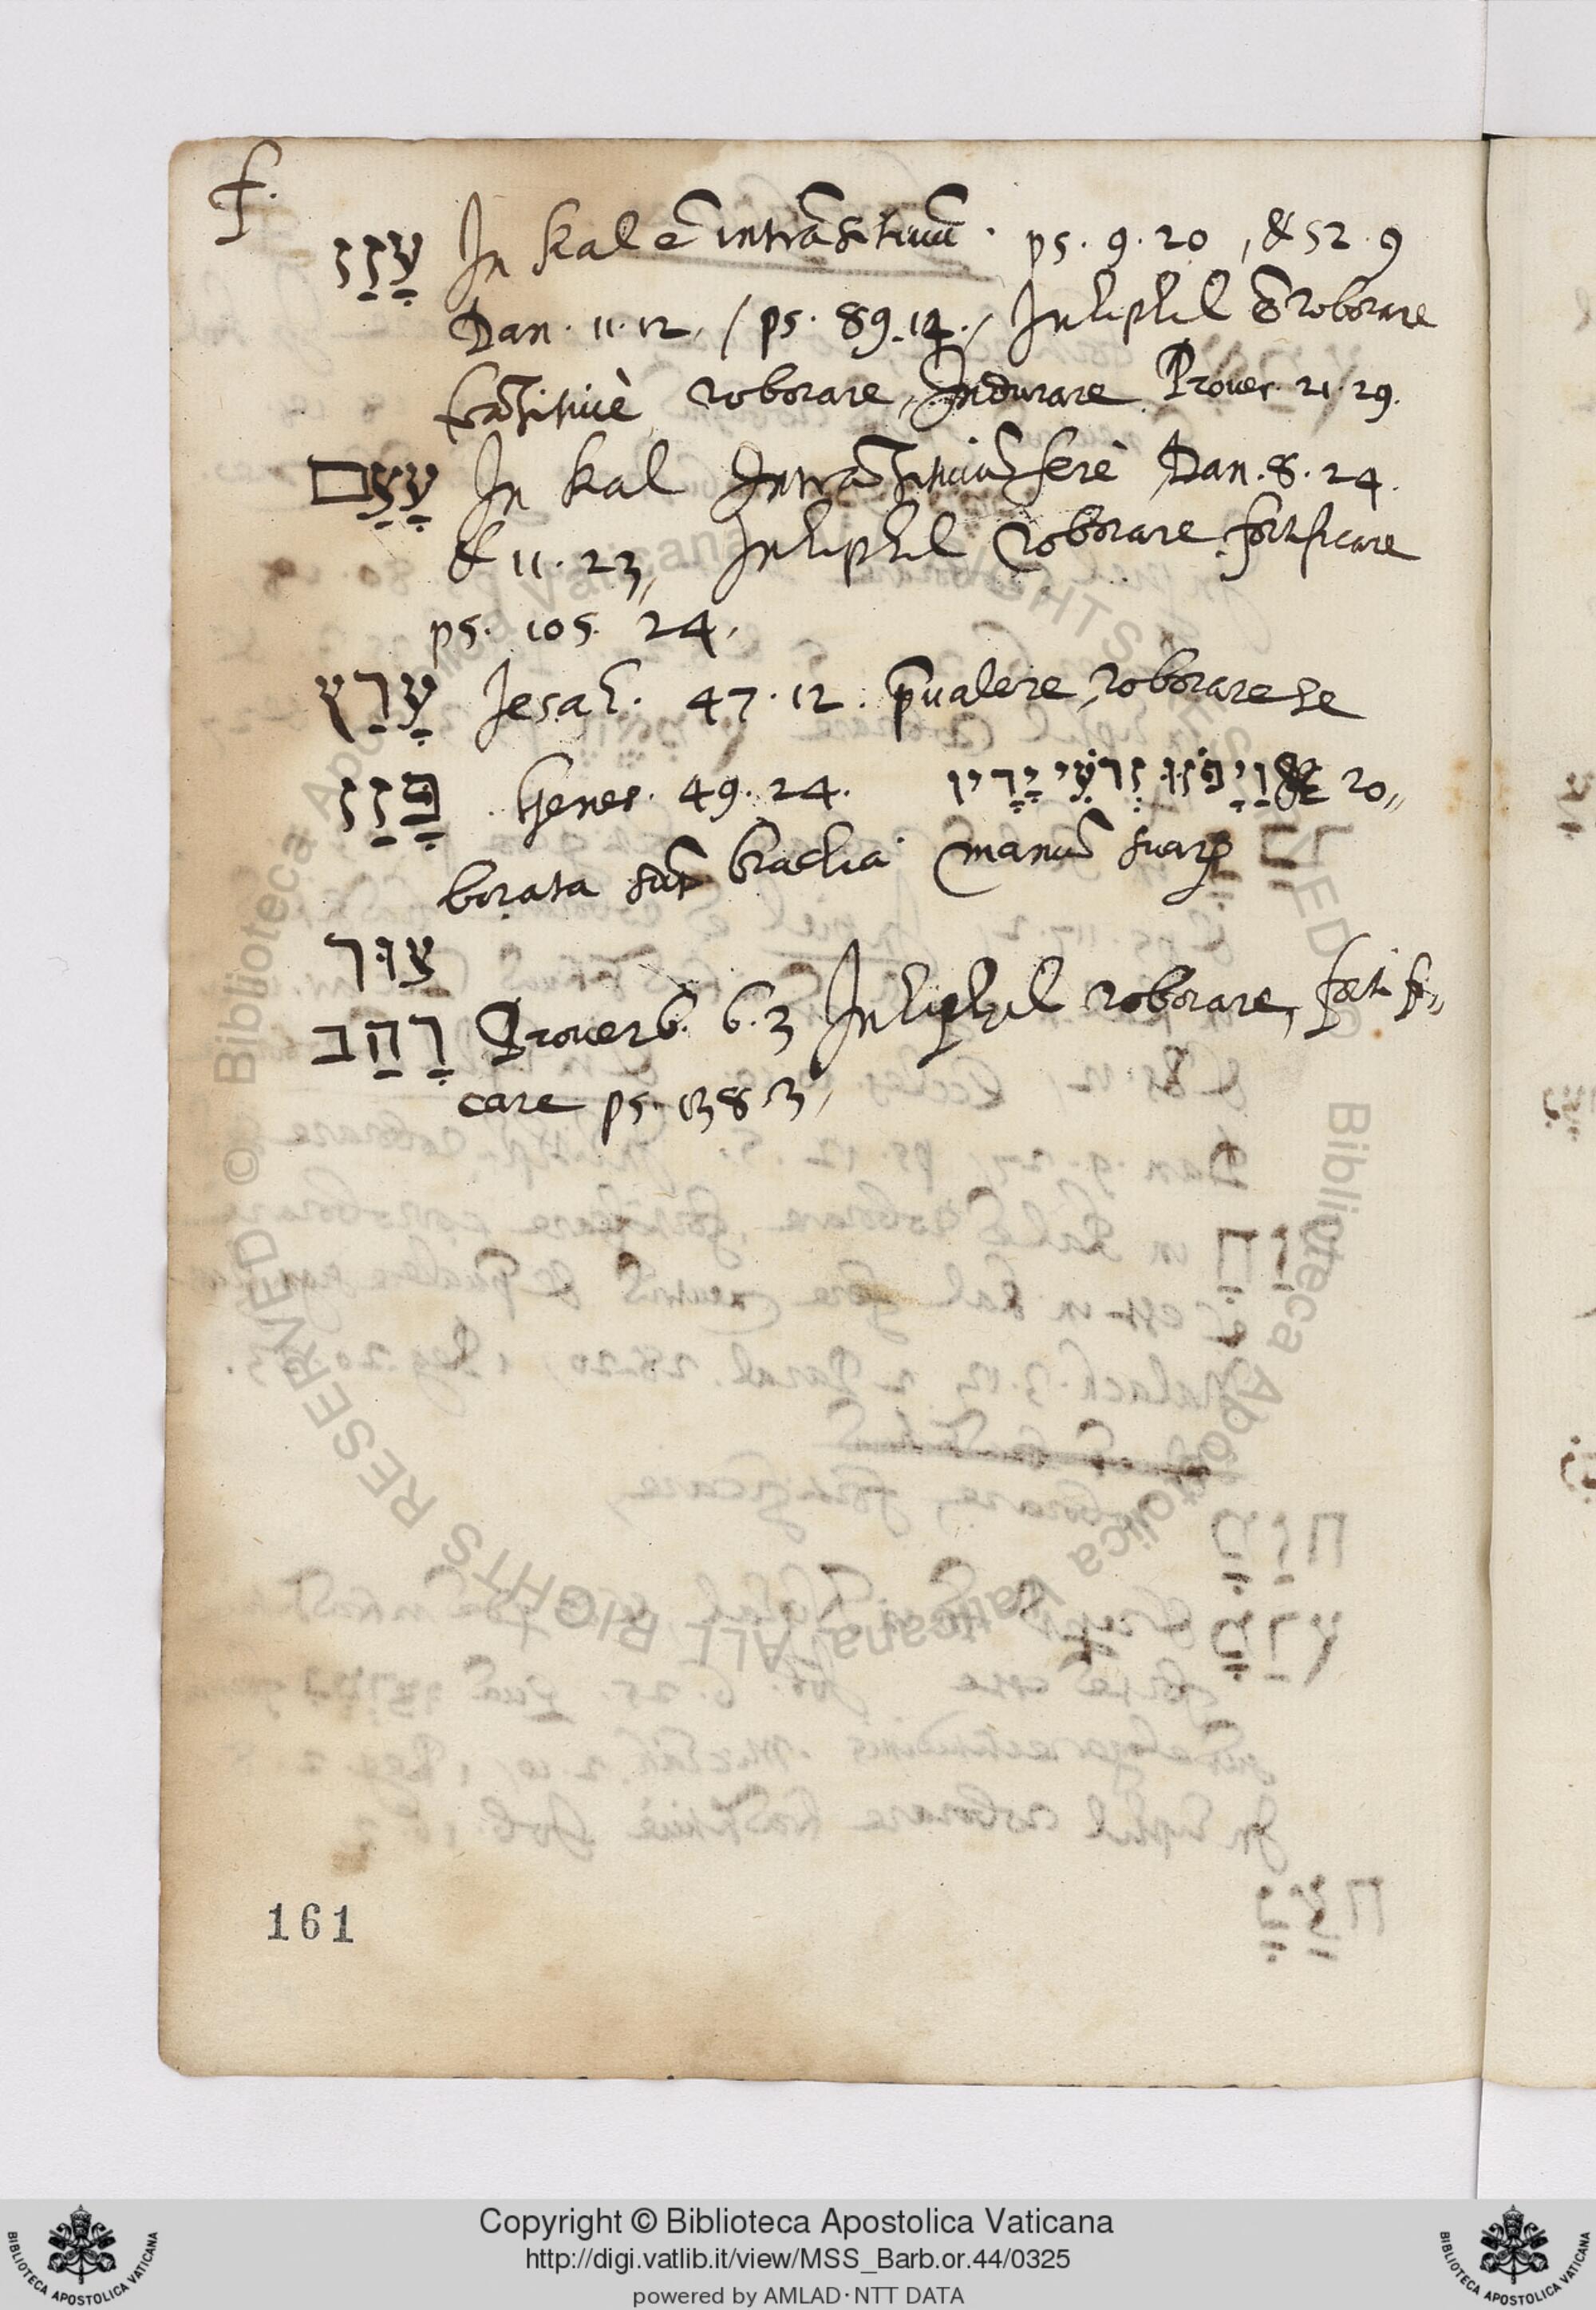 f.
עָזַז In kal ē intrãsitiuũ. ps. 9. 20, & 52. 9
Dan. 11. 12, / ps. 89. 14. / In hiphil ẽ roborare
trãsitiuè roborare, Indurare Prouer. 21. 29.
עָצַם In kal Intrãsitiuũ ferè Dan. 8. 24.
& 11. 23, In hiphil roborare fortificare
ps. 105. 24.
עָרַץ Jesaĩ. 47. 12. p̃ualere, roborare se
פָּזַז Genes. 49. 24. וַיָפֹזּוּ זְרֹעֵי יָדָיו & ro„
borata sũt brachia manuũ suarꝝ
צוּר
רָהַב Prouerb. 6. 3 In hiphil roborare, fortifi„
care ps. 138. 3,
161
Biblioteca Apostolica Vaticana ALL RIGHTS RESERVED ©
Copyright © Biblioteca Apostolica Vaticana
http://digi.vatlib.it/view/MSS_Barb.or.44/0325
powered by AMLAD·NTT DATA
BIBLIOTECA APOSTOLICA VATICANA
BIBLIOTECA APOSTOLICA VATICANA